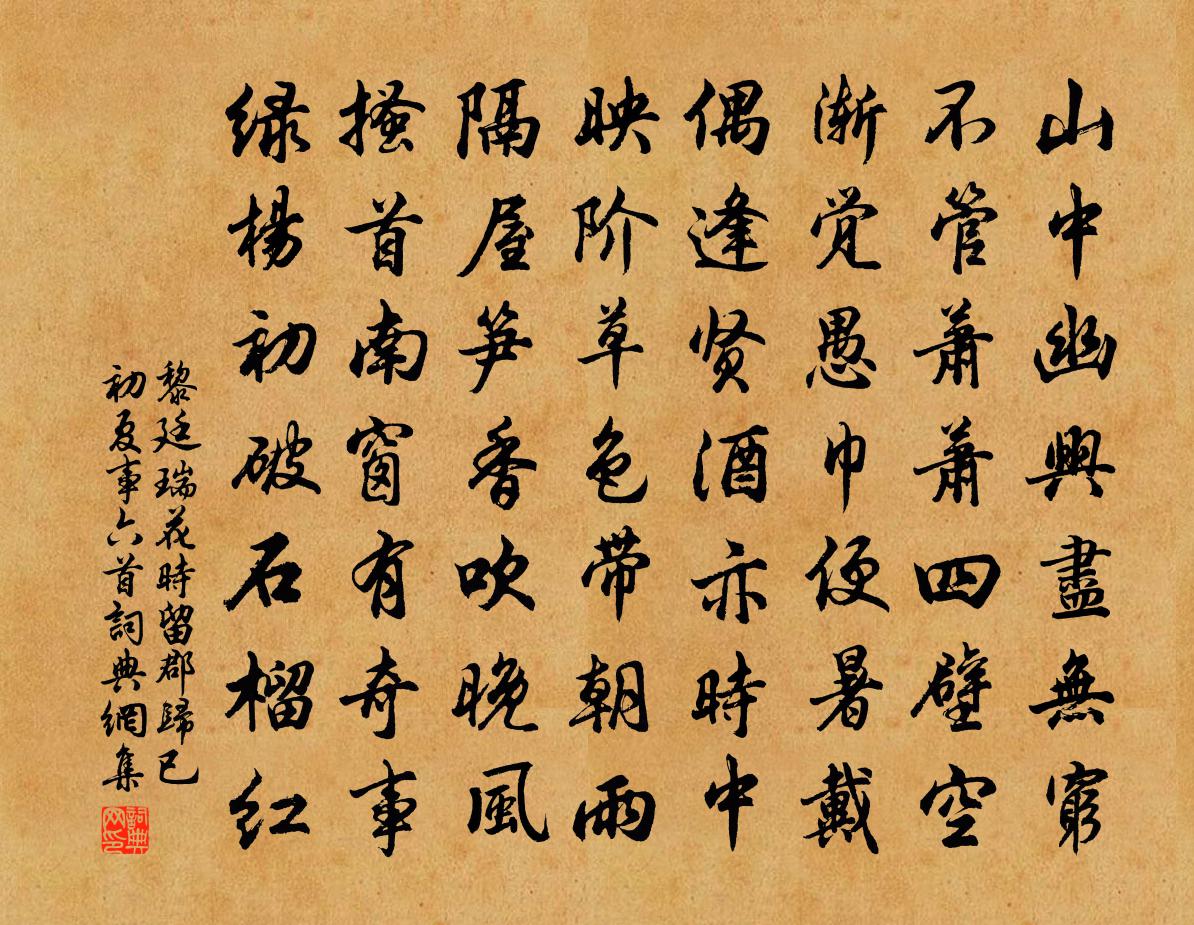 山中幽興盡無窮
不管蕭蕭四壁空
渐觉愚巾便暑戴
偶逢贤酒亦時中
映阶草色带朝雨
隔屋笋香吹晚風
搔首南窗有奇事
绿楊初破石榴红
黎廷瑞花時留郡歸已
初夏事六首詞典網集
詞典网印